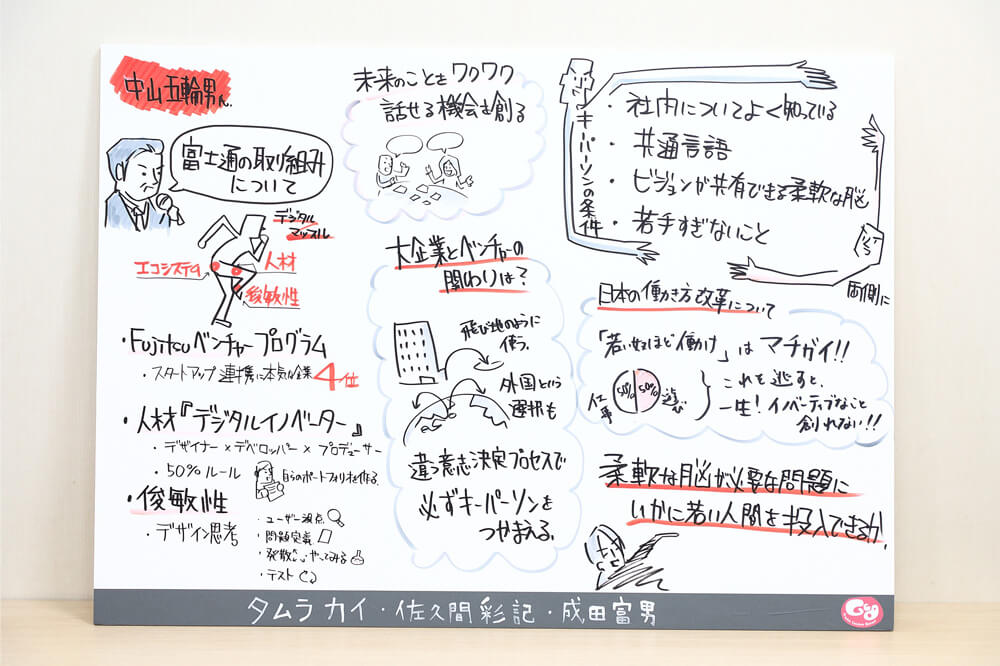 中山五輪男さん
富士通の取り組み
について
デジタル
マッスル
エコシステム
人材
俊敏性
・Fujitsuベンチャープログラム
・スタートアップ連携に本気な企業4位
・人材『デジタルイノベーター』
・デザイナー×デベロッパー×プロデューサー
・50%ルール
自らのポートフォリオを作る。
・俊敏性
・デザイン思考
・ユーザー視点
・問題定義
・発散 やってみる
・テスト
未来のことをワクワク
話せる機会を創る
大企業とベンチャーの
関わりは?
飛び地のように
使う。
外国という
選択も
違う意志決定プロセスで
必ずキーパーソンを
つかまえる。
キーパーソンの条件
・社内についてよく知っている
・共通言語
・ビジョンが共有できる柔軟な脳
・若手すぎないこと
両側に
日本の働き方改革について
「若い奴ほど働け」はマチガイ!!
仕事
50%
50%
遊び
これを逃すと、
一生!イノベーティブなこと
創れない!!
柔軟な脳が必要な問題に
いかに若い人間を投入できるか。
タムラカイ・佐久間彩記・成田富男